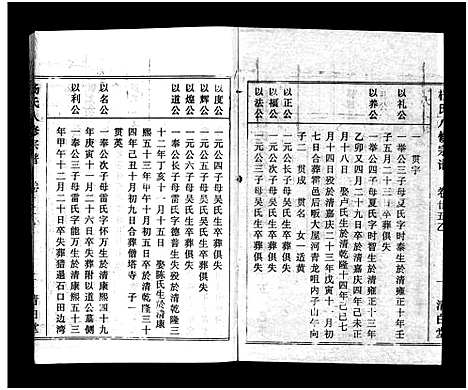 楊氏八修宗譜
卷廿五乙
清白堂
一 貫字
以礼公
一奉公三子母夏氏字时泰生於清雍正十年壬
子五月二十三日卒葬俱失
以养公
一举公四子母夏氏字时智生於清雍正十三年
乙卯又四月二十九日卒於清嘉庆四年己未正
月十八日 娶卢氏生於清乾隆十四年己巳七
月十四日殁於清嘉庆二十三年戊寅十一月初
七日合葬霍邑后畈大屋河青龙咀内子山午向
子二 贯成 贯名 女一适黄
以正公
一元公长子母吴氏生卒葬俱失
以福公
一元公二子母吴氏生卒葬俱失
以法公
一元公三子母吴氏生卒葬俱失
以度公
一元公四子母吴氏生卒葬俱失
以辉公
一元公五子母吴氏生卒葬俱失
以煌公
一元公六子母吴氏生卒葬俱失
以道公
一奉公长子母雷氏字德普生失殁於清乾隆三
十二年丁亥十一月十五日 娶陈氏生於清康
熙五十三年甲午十月初五日卒於清乾隆三十
四年己丑十月初九日合葬僧塔寺 子一
贯英
以名公
一奉公次子母雷氏字怀万生於清康熙四十九
年庚寅十一月二十六日卒失葬附以道公墓侧
以利公
一奉公三子母雷氏字能万生於清康熙五十三
年甲午十二月二十日卒失葬猎遏石口田边湾
楊氏八修宗譜
清白堂